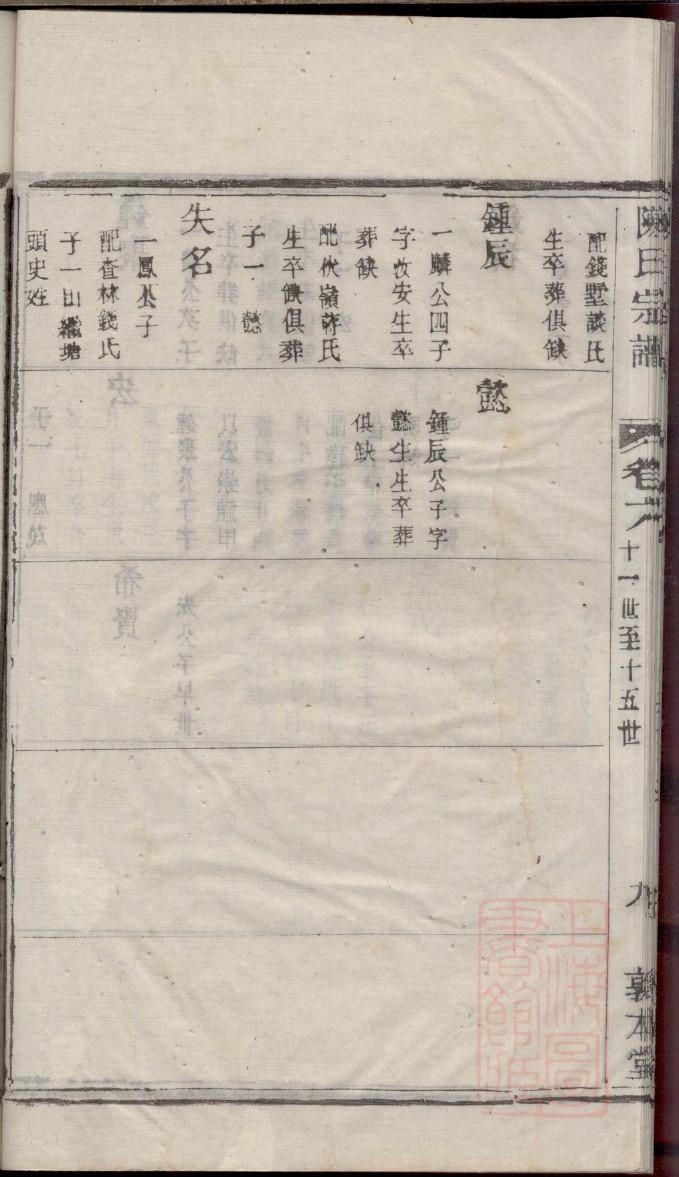 陳氏宗譜
卷六
十一世至十五世
九
敦本堂
配錢墅談氏
生卒葬俱缺
鍾辰
一麟公四子
字汝安生卒
葬缺
配伏嶺蔣氏
生卒缺俱葬
子一 懿
失名
一鳳公子
配查林錢氏
子一出繼塘
頭史姓
懿
鍾辰公子字
懿生生卒葬
俱缺
上海圖
書館藏